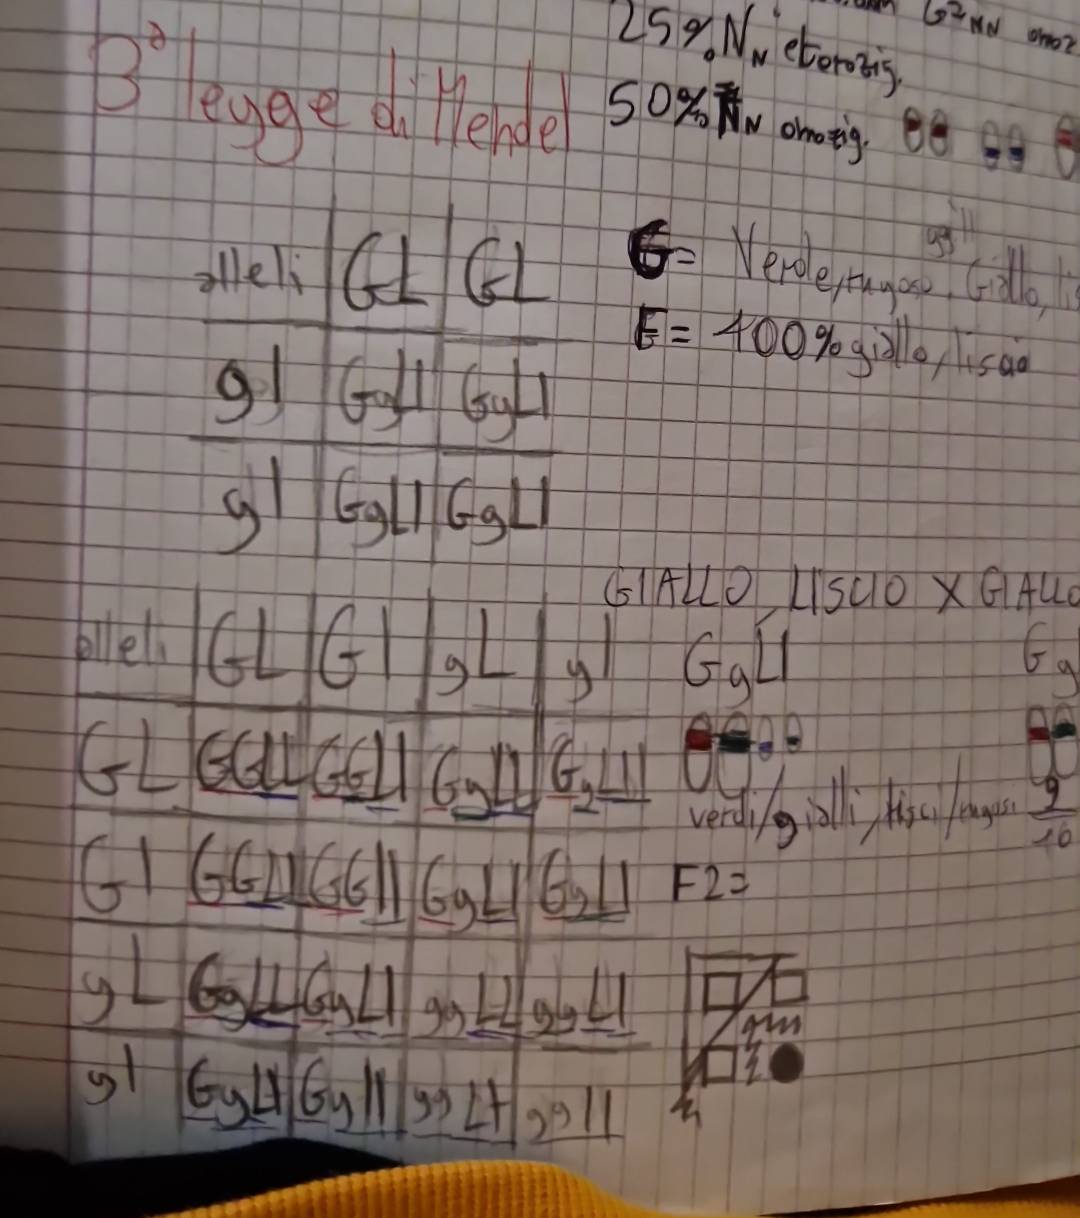 25% NN eterozig.
3ª legge di Mendel
50% NN omozig.
alleli GL GL
G= Verde, rugoso, Giallo,
ggll
gl GgLl GgLl
F= 100% giallo, liscio
gl GgLl GgLl
GIALLO, LISCIO X GIALLO
alleli GL Gl gL gl
GgLl Gg
GL GGLL GGLl GgLL GgLl
verdi/gialli, lisci/rugosi 9/16
Gl GGLl GGll GgLl GgLl
F2=
gL GgLL GgLl ggLL ggLl
gl GgLl Ggll ggLl ggll